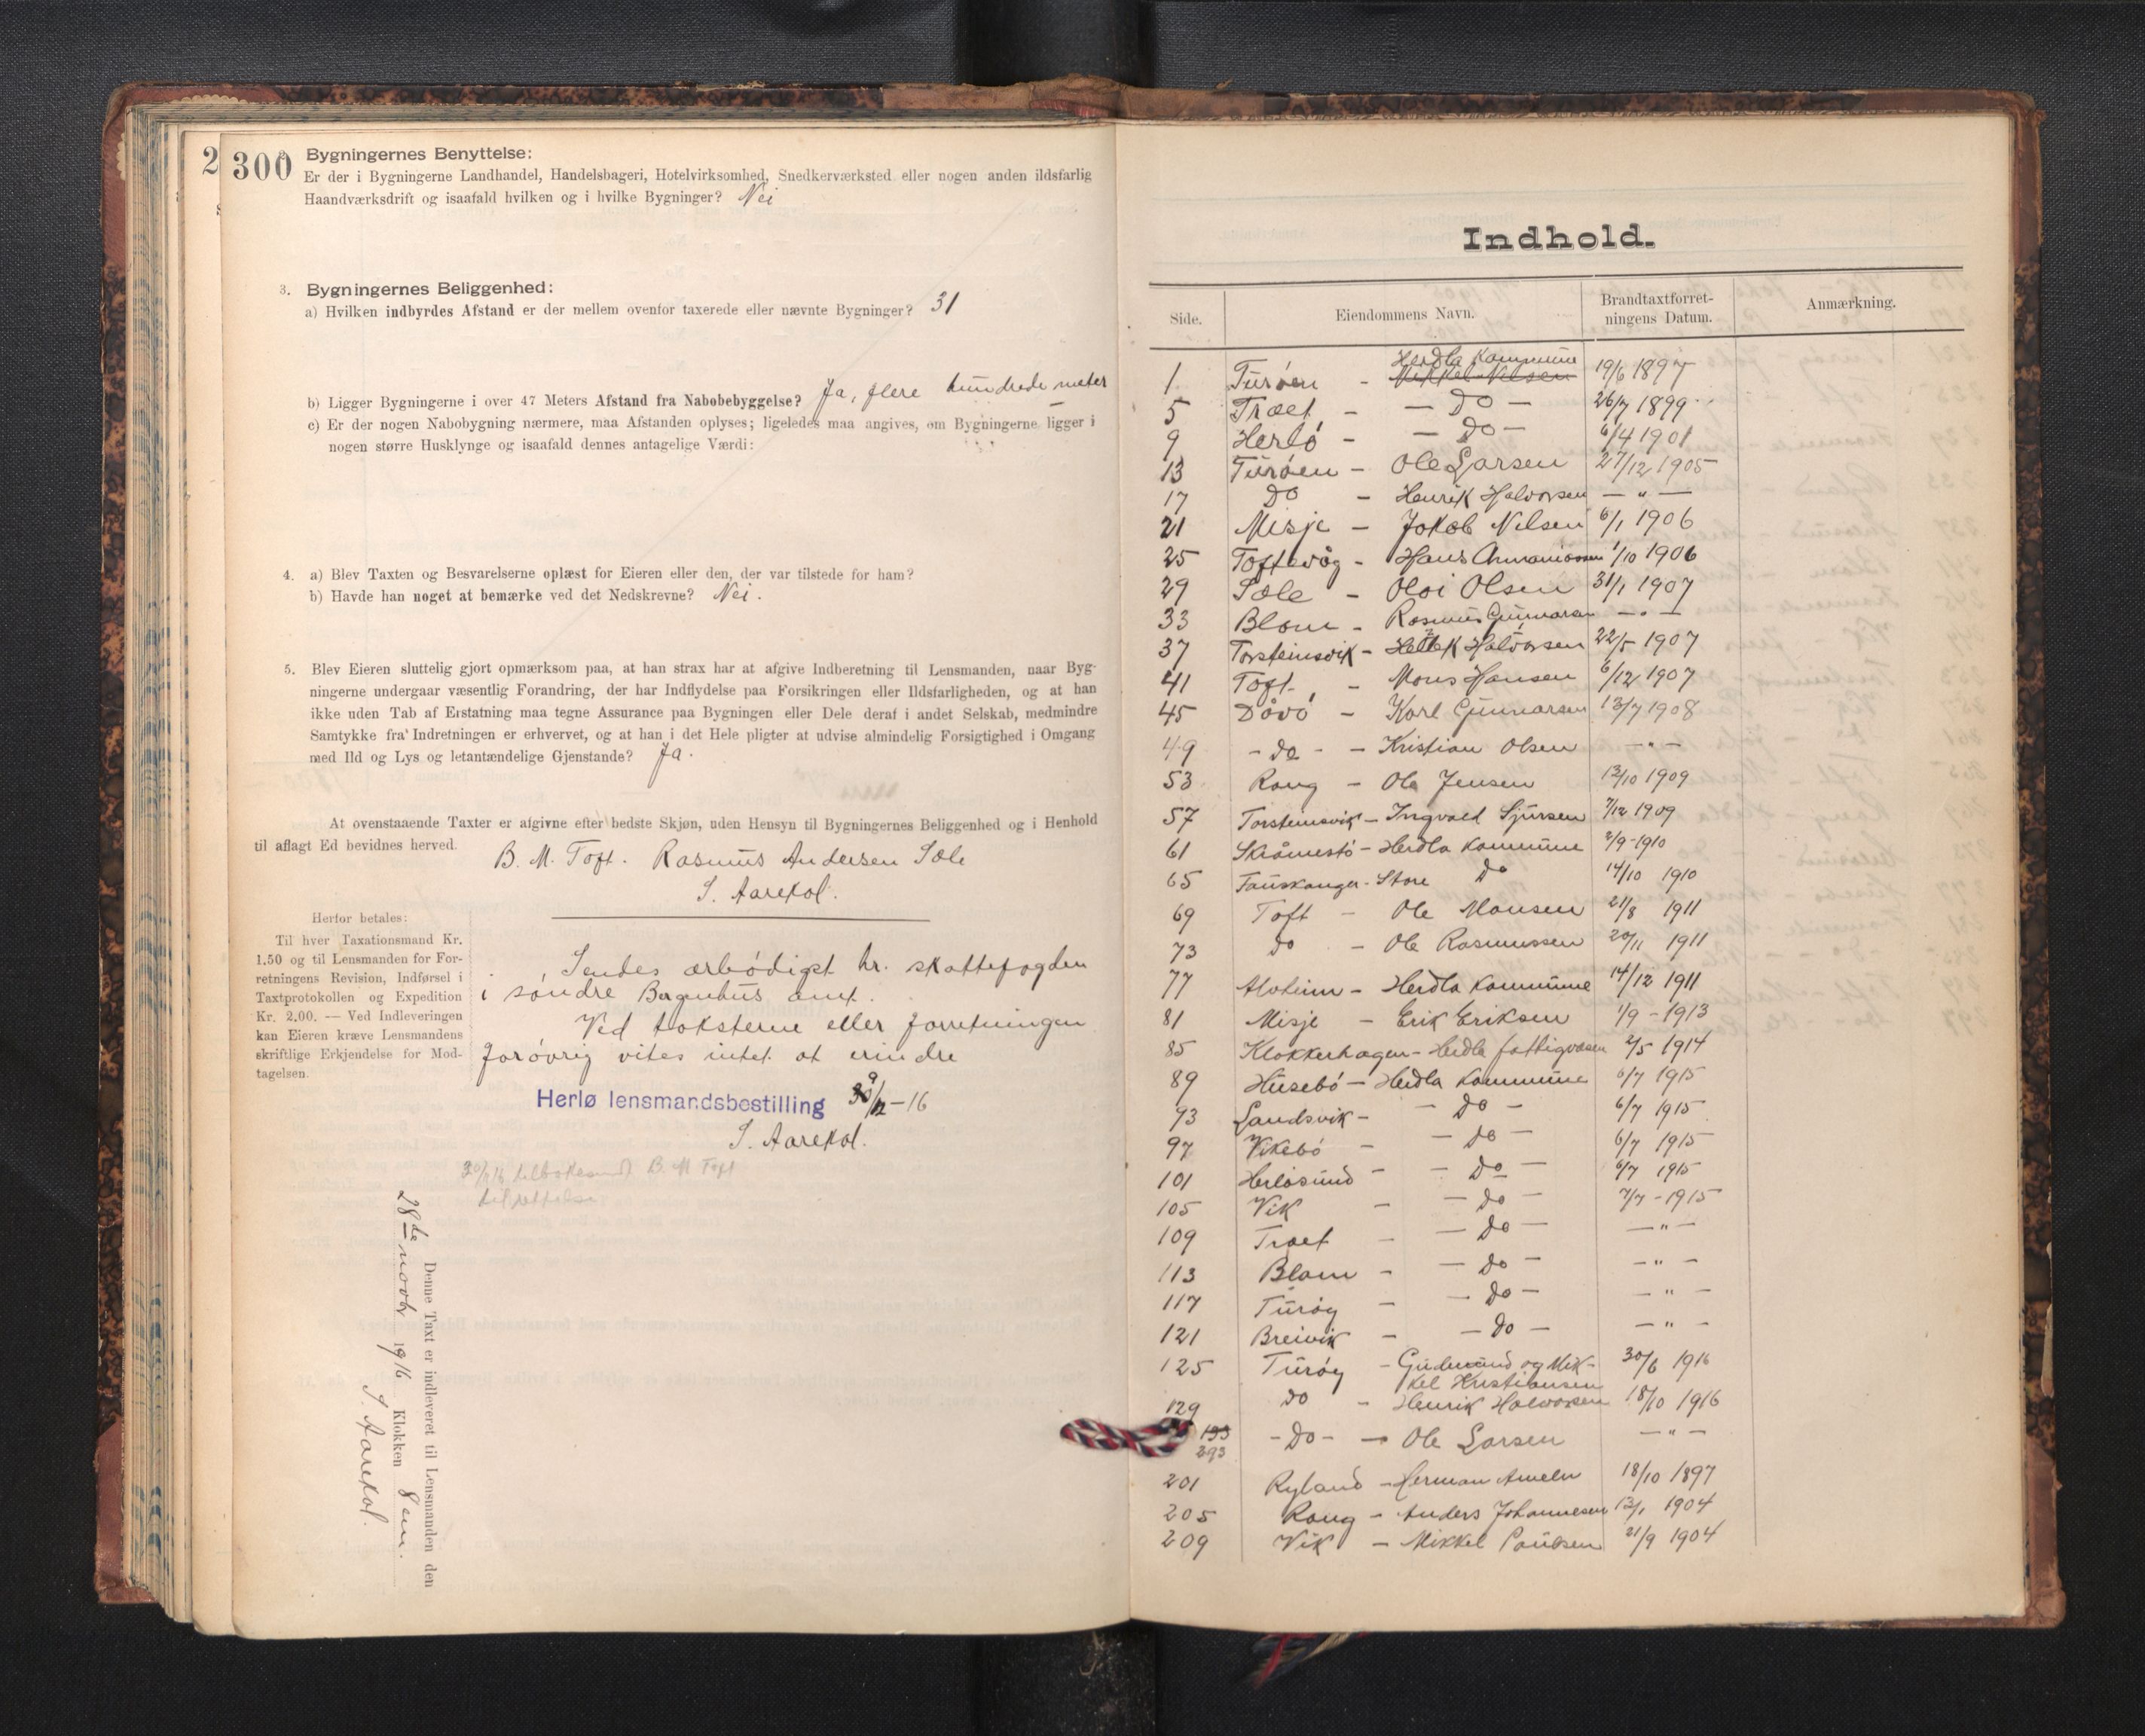 2
300
2. Bygningernes Benyttelse:
Er der i Bygningerne Landhandel, Handelsbageri, Hotelvirksomhed, Snedkerværksted eller nogen anden ildsfarlig
Haandværksdrift og isaafald hvilken og i hvilke Bygninger? Nei
3. Bygningernes Beliggenhed:
a) Hvilken indbyrdes Afstand er der mellem ovenfor taxerede eller nævnte Bygninger? 31
b) Ligger Bygningerne i over 47 Meters Afstand fra Nabobebyggelse? Ja, flere hundrede meter
c) Er der nogen Nabobygning nærmere, maa Afstanden oplyses; ligeledes maa angives, om Bygningerne ligger i
nogen større Husklynge og isaafald dennes antagelige Værdi: —
4. a) Blev Taxten og Besvarelserne oplæst for Eieren eller den, der var tilstede for ham?
b) Havde han noget at bemærke ved det Nedskrevne? Nei.
5. Blev Eieren sluttelig gjort opmærksom paa, at han strax har at afgive Indberetning til Lensmanden, naar Byg-
ningerne undergaar væsentlig Forandring, der har Indflydelse paa Forsikringen eller Ildsfarligheden, og at han
ikke uden Tab af Erstatning maa tegne Assurance paa Bygningen eller Dele deraf i andet Selskab, medmindre
Samtykke fra Indretningen er erhvervet, og at han i det Hele pligter at udvise almindelig Forsigtighed i Omgang
med Ild og Lys og letantændelige Gjenstande? Ja.
At ovenstaaende Taxter er afgivne efter bedste Skjøn, uden Hensyn til Bygningernes Beliggenhed og i Henhold
til aflagt Ed bevidnes herved.
B. M. Toft. Rasmus Andersen Sæle
S. Aarekol.
Herfor betales:
Til hver Taxationsmand Kr.
1.50 og til Lensmanden for For-
retningens Revision, Indførsel i
Taxtprotokollen og Expedition
Kr. 2.00. — Ved Indleveringen
kan Eieren kræve Lensmandens
skriftlige Erkjendelse for Mod-
tagelsen.
Sendes ærbödigst hr. skattefogden
i söndre Bergenhus amt.
Ved taksterne eller forretningen
forövrig vites intet at erindre
Herlø lensmandsbestilling 9/12-16
S. Aarekol.
B. M Toft
Denne Taxt er indleveret til Lensmanden den
28de novbr 1916 Klokken 8 em.
S. Aarekol.
Indhold.
Side. Eiendommens Navn. Brandtaxtforret-ningens Datum. Anmærkning.
Herdla Kommune
1 Turöen - Mikkel Nilsen 19/6 1897
5 Træt - — Do — 26/7 1899
9 Herlö - — Do — 6/4 1901
13 Turöen - Ole Larsen 27/12 1905
17 Do - Henrik Halvorsen — " —
21 Misje - Jakob Nilsen 6/1 1906
25 Toftevåg - Hans 1/10 1906
29 Sæle - Oloi Olsen 31/1 1907
33 Blom - Rasmus Gunnarsen — " —
37 Torsteinsvik - Halvorsen 22/5 1907
41 Toft - Mons Hansen 6/12 1907
45 Dåvö - Karl Gunnarsen 13/7 1908
49 - Do - - Kristian Olsen — " —
53 Rong - Ole Jensen 13/10 1909
57 Torsteinsvik - Ingvald Sjursen 7/12 1909
61 Skråmestö - Herdla Kommune 2/9-1910
65 Fauskanger-Store Do 14/10 1910
69 Toft - Ole Monsen 21/8 1911
73 Do - Ole Rasmussen 20/11 1911
77 Alvheim - Herdla Kommune 14/12 1911
81 Misje - Erik Eriksen 1/9-1913
85 Klokkerhagen - Herdla fattigvæsen 2/5 1914
89 Husebö - Herdla Kommune 6/7 1915
93 Landsvik - — Do — 6/7 1915
97 Vikebö - — Do — 6/7 1915
101 Herlösund - — Do — 6/7 1915
105 Vik - — Do — 7/7-1915
109 Træt - — Do — — " —
113 Blom - — Do — — " —
117 Turöy - — Do — — " —
121 Breivik - — Do — — " —
125 Turöy - Gudmund og Mik-
kel Kristiansen 30/6 1916
129 Do - Henrik Halvorsen 18/10 1916
133
293 - Do - - Ole Larsen — " —
201 Ryland - Herman Ameln 18/10 1897
205 Rong - Anders Johannesen 13/1 1904
209 Vik - Mikkel Paulsen 21/9 1904